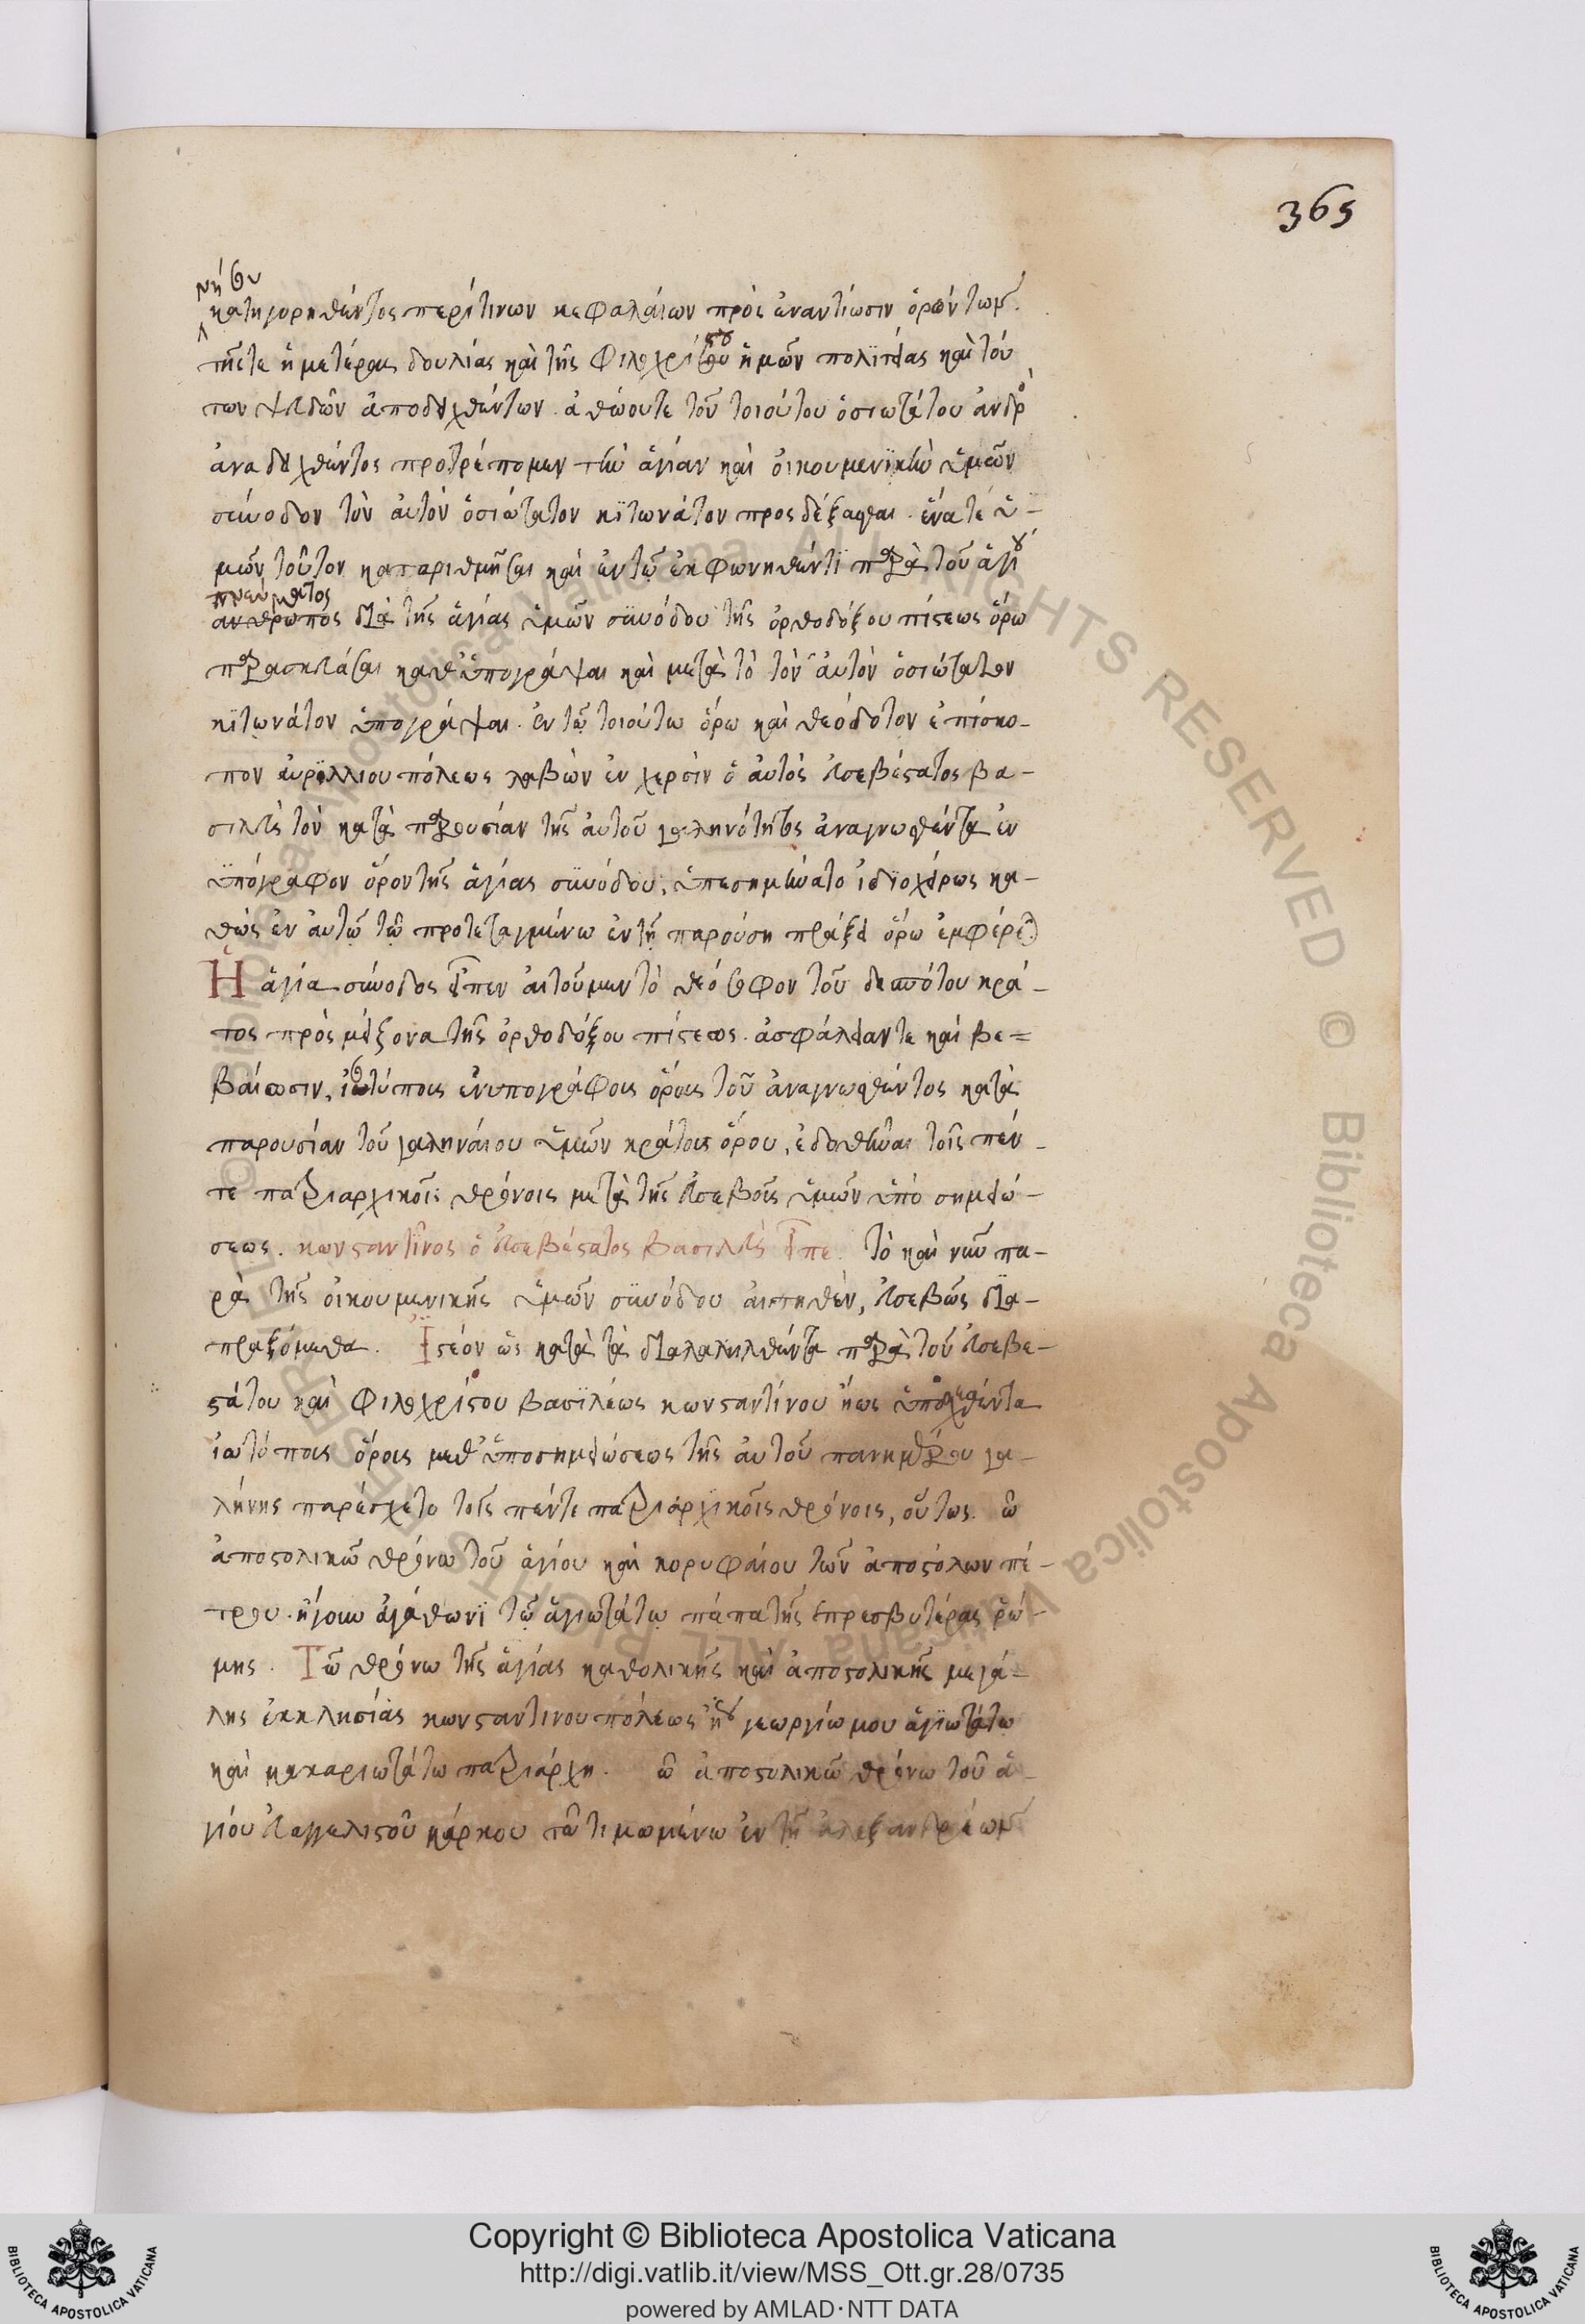 365
νήσου
κατηγορηθέντος περίτινων κεφαλαίων πρὸς ἐναντίωσιν ὁρώντων.
τῆςτε ἡμετέρας δουλίας καὶ τῆς φιλοχρίστου ἡμῶν πολϊτείας καὶ τού
των ψευδῶν ἀποδειχθέντων. ἀθώουτε τοῦ τοιούτου ὁσιωτάτου ἀνδρὸ
ἀναδειχθέντος προτρέπομεν τὴν ἁγίαν καὶ ὀικουμενϊκὴν ὑμῶν
σύνοδον τὸν ἀυτὸν ὁσιώτατον κϊτωνάτον προσδέξασθαι. ἕνατέ ὑ-
μῶν τοῦτον καταριθμῆσαι καὶ ἐντῶ ἐκφωνηθέντϊ παρὰ τοῦ ἁγίου
πνεύματος
διὰ τῆς ἁγίας ὑμῶν σϋνόδου τῆς ὀρθοδόξου πίστεως ὅρω
παρασκευάσαι καθυπογράψαι καὶ μετὰ τὸ τὸν ἀυτὸν ὁσιώτατον
κϊτωνάτον ὑπογράψαι. ἐν τῶ τοιούτω ὅρω καὶ θεόδοτον ἐπίσκο-
πον ἀυρϊλλιουπόλεως λαβὼν ἐν χερσὶν ὁ ἀυτὸς ἐυσεβέστατος βα-
σιλεὺς τὸν κατὰ παρουσίαν τῆς ἀυτοῦ γαληνότητος ἀναγνωσθέντα ἐν
ϋπόγραφον ὅρον τῆς ἁγίας σϋνόδου, ὑπεσημήνατο ἰδϊοχείρως κα-
θὼς ἐν ἀυτῶ τῶ προτεταγμένω ἐντῆ παρούση πράξει ὅρω ἐμφέρεται
Ἡ ἁγία σύνοδος εἶπεν ἀιτοῦμεν τὸ θεόσοφον τοῦ δεσπότου κρά-
τος πρὸς μείζονα τῆς ὀρθοδόξου πίστεως. ἀσφάλειαντε καὶ βε-
βαίωσιν, ἰσοτύποις ἐνυπογράφοις ὅροις τοῦ ἀναγνωσθέντος κατὰ
παρουσίαν τοῦ γαληναίου ὑμῶν κράτους ὅρου, ἐδοθῆναι τοῖς πέν-
τε πατριαρχικοῖς θρόνοις μετὰ τῆς ἐυσεβοῦς ὑμῶν ὑπὸ σημειώ-
σεως. κωνσταντῖνος ὁ ἐυσεβέστατος βασιλεὺς εἶπε. τὸ καὶ νῦν πα-
ρὰ τῆς ὀικουμενικῆς ὑμῶν σϋνόδου ἀιτηθὲν, ἐυσεβῶς δια-
πραξόμεθα. Ϊστέον ὡς κατὰ τὰ διαλαληθέντα παρὰ τοῦ ἐυσεβε-
στάτου καὶ φιλοχρίστου βασϊλέως κωνσταντίνου
ἰσοτύποις ὅροις μεθ' ὑποσημειώσεως τῆς ἀυτοῦ πανημέρου γα-
λήνης παρέσχετο τοῖς πέντε πατριαρχϊκοῖς θρόνοις, οὕτως. ῶ
ἀποστολικῶ θρόνω τοῦ ἁγίου καὶ κορυφαίου τῶν ἀποστόλων πέ-
τρου. ἤγουν ἀγάθωνϊ τῶ ἁγιωτάτω πάπα τῆς πρεσβυτέρας ῥώ-
μης. Τῶ θρόνω τῆς ἁγίας καθολικῆς καὶ ἀποστολικῆς μεγά-
λης ἐκκλησίας κωνσταντινουπόλεως ἤγουν γεωργίω μου ἁγϊωτάτω
καὶ μακαριωτάτω πατριάρχη. ῶ ἀποστολικῶ θρόνω τοῦ ἁ-
γίου ἐυαγγελιστοῦ μάρκου τῶ τιμωμένω ἐν τῆ ἀλεξανδρέων
Copyright © Biblioteca Apostolica Vaticana
http://digi.vatlib.it/view/MSS_Ott.gr.28/0735
powered by AMLAD·NTT DATA